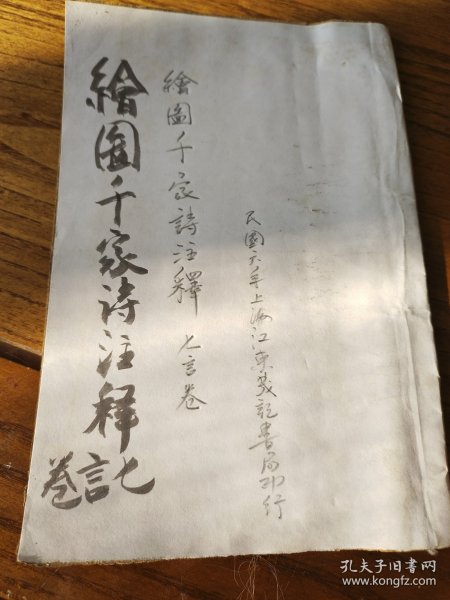 民國六年上海江東茂記書局印行
繪圖千家詩注釋 七言卷
繪圖千家詩注释七言卷
孔夫子旧书网
www.kongfz.com